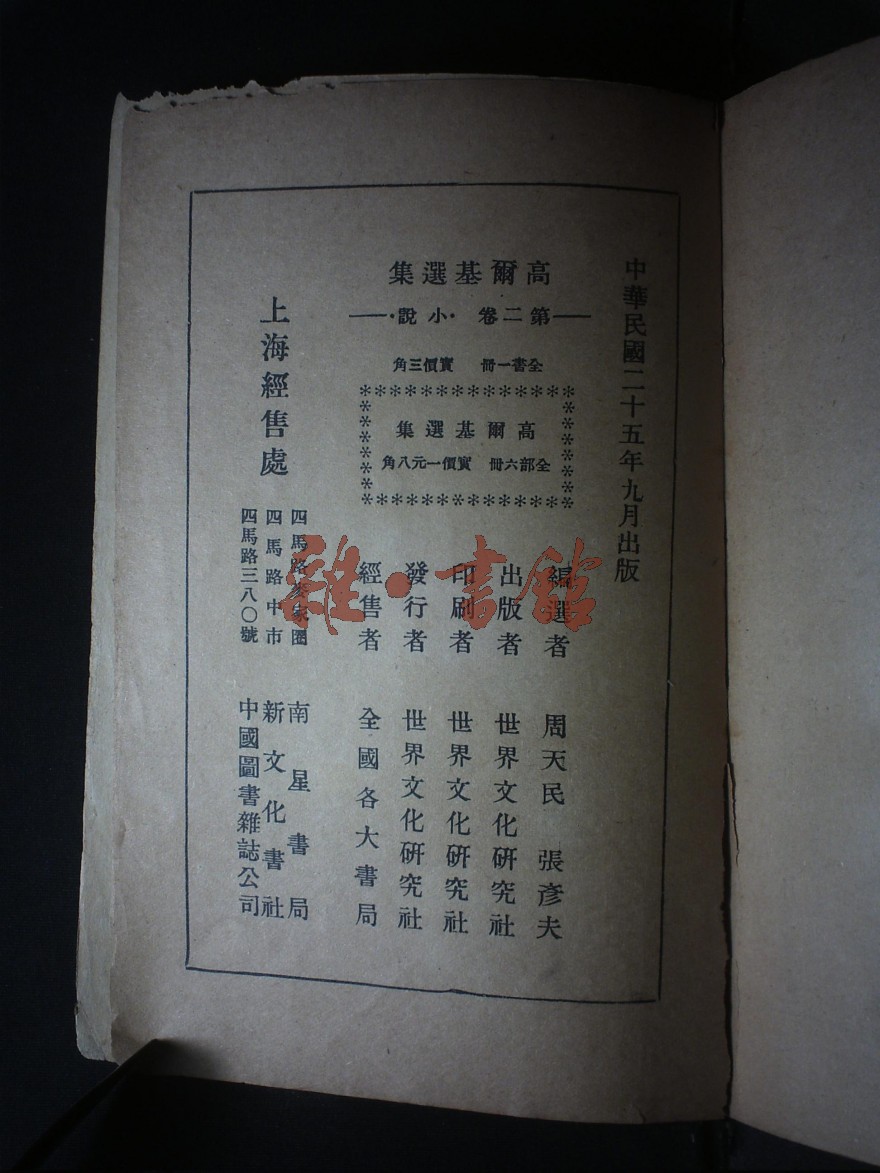 中華民國二十五年九月出版
高爾基選集
第二卷·小說·
全書一冊 實價三角
高爾基選集
全部六冊 實價一元八角
編選者 周天民 張彥夫
出版者 世界文化研究社
印刷者 世界文化研究社
發行者 世界文化研究社
經售者 全國各大書局
上海經售處
四馬路麥家圈 南星書局
四馬路中市 新文化書社
四馬路三八〇號 中國圖書雜誌公司
雜·書館